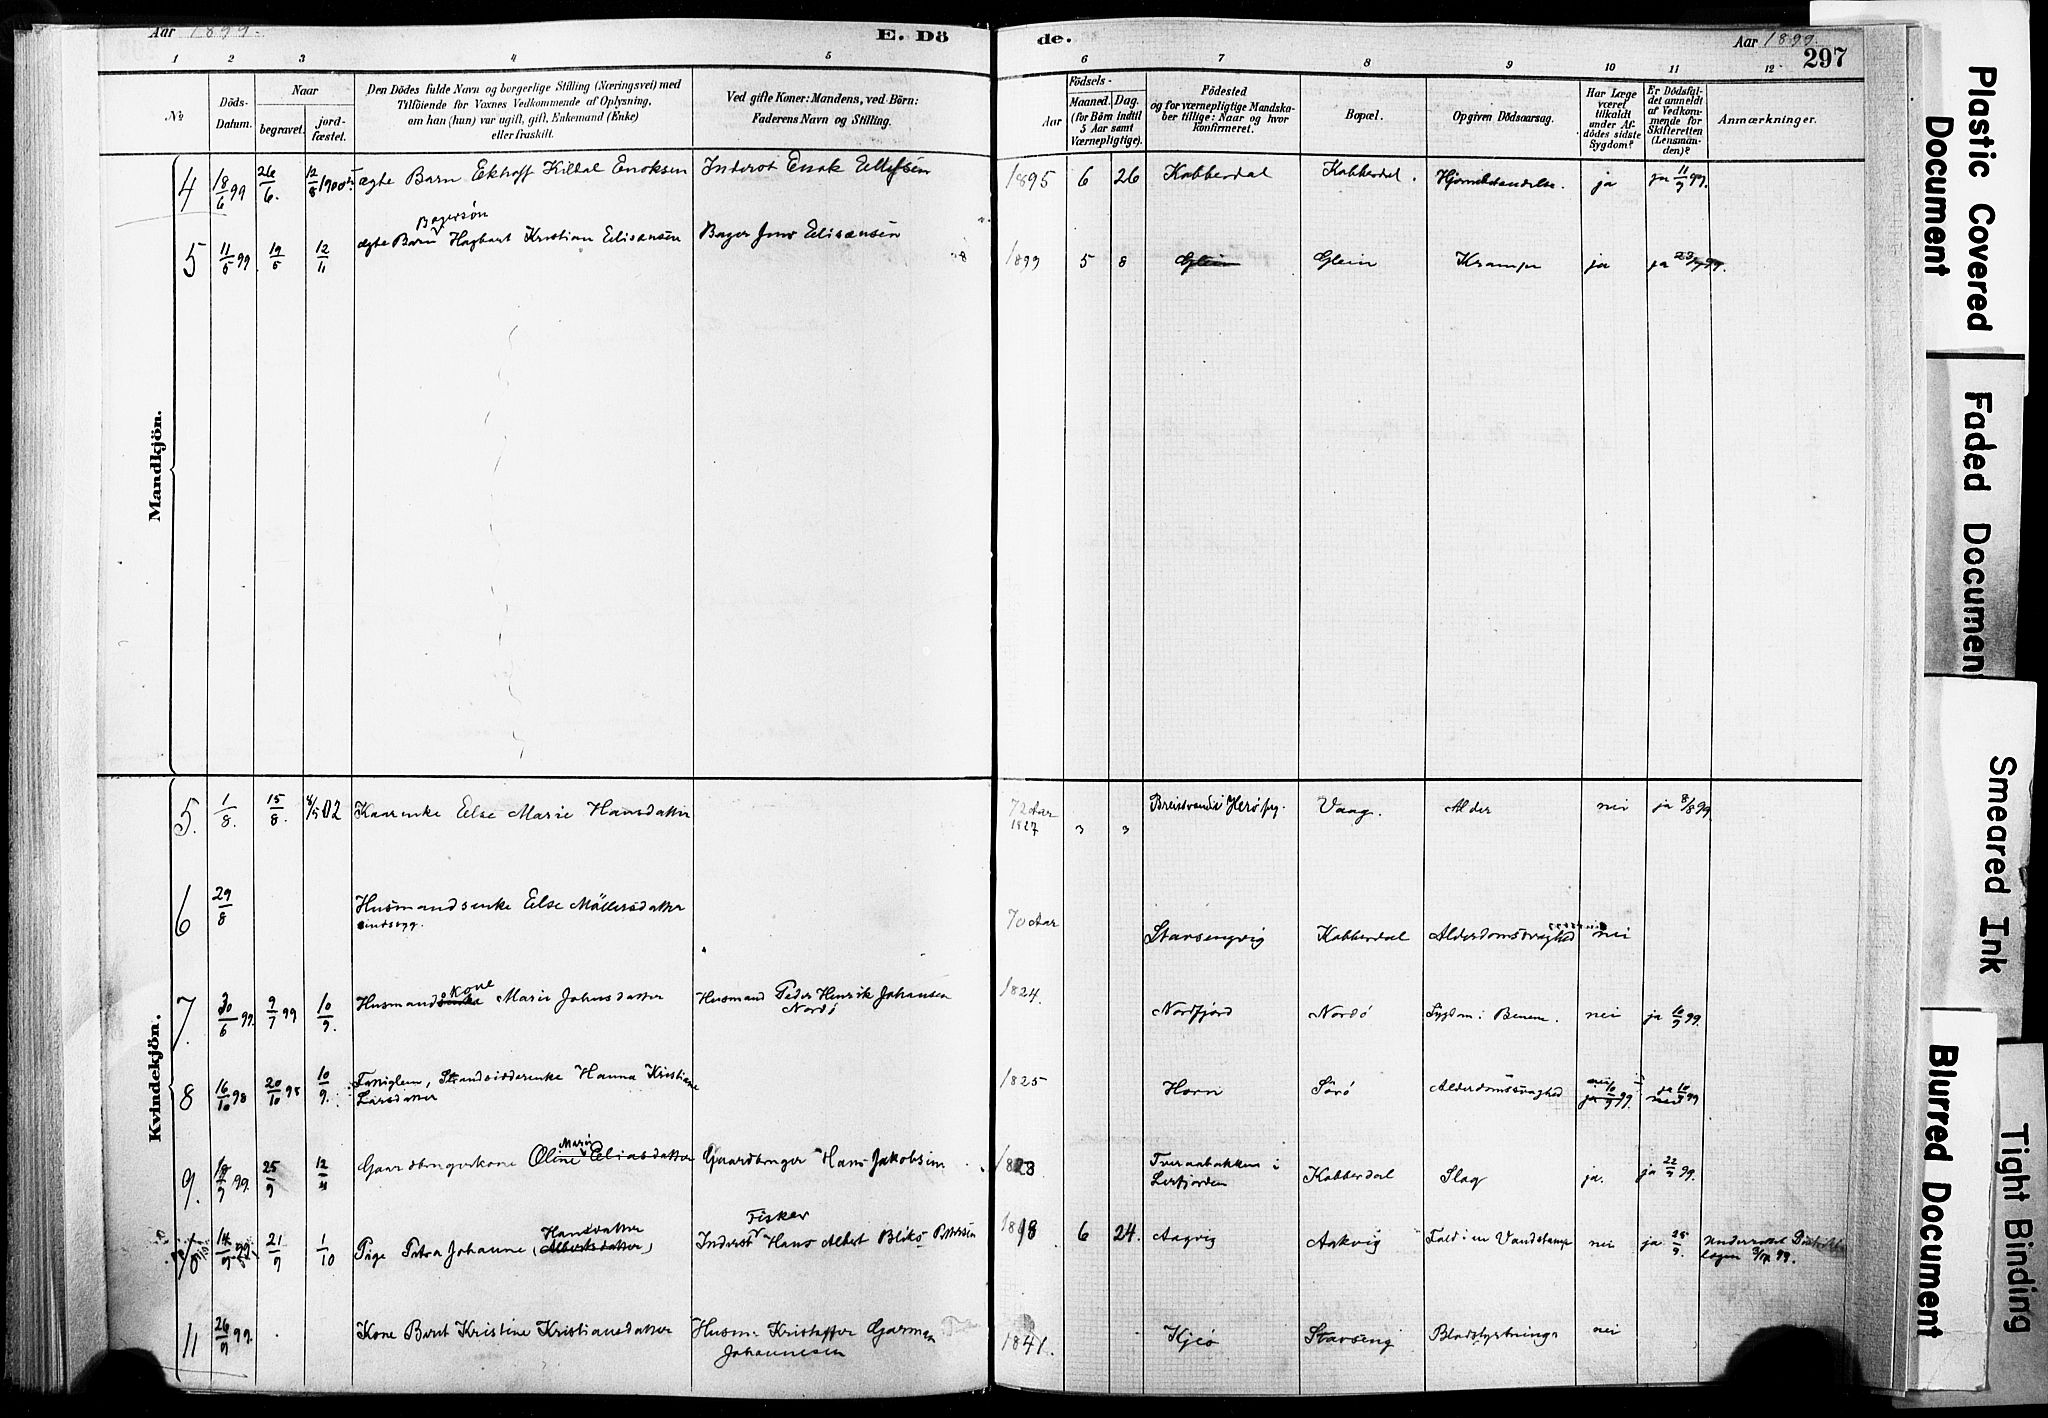 Aar 1899.
E. Dö
de.
Aar 1899.
297
1 2 3 4 5 6 7 8 9 10 11 12
No
Döds-
Datum.
Naar
begravet.
jord-
fæstet.
Den Dödes fulde Navn og borgerlige Stilling (Næringsvei) med
Tilföiende for Voxnes Vedkommende af Oplysning,
om han (hun) var ugift, gift, Enkemand (Enke)
eller fraskilt.
Ved gifte Koner: Mandens, ved Börn:
Faderens Navn og Stilling.
Födsels-
Aar
Maaned.
Dag.
(for Börn indtil
5 Aar samt
Værnepligtige).
Födested
og for værnepligtige Mandska-
ber tillige: Naar og hvor
konfirmeret.
Bopæl.
Opgiven Dödsaarsag.
Har Læge
været
tilkaldt
under Af-
dödes sidste
Sygdom?
Er Dödsfal-
det anmeldt
af Vedkom-
mende for
Skifteretten
(Lensman-
den)?
Anmærkninger.
Mandkjön.
4 18/6 99 26/6. 12/8 1900 ægte Barn Ekhoff Kildal Enoksen Inderst Enok Ellefsen 1895 6 26 Kobberdal Kobberdal. Hjernebetændelse. ja ja 11/9 99.
Bagersøn
5 11/5 99. 19/5 12/11 ægte Barn Hagbart Kristian Eliseusen Bager Jens Eliseusen 1899 5 8 Glein Glein Krampe ja ja 23/9 99.
Kvindekjön.
5. 1/8. 15/8. 4/5 02 Kaarenke Else Marie Hansdatter 72 Aar
1827 3 3 Breistrand i Herø pg. Vaag. Alder nei ja 8/8 99
6 29/8 Husmandsenke Else Möllersdatter
sindssyg. 70 Aar Stavsengvig Kobberdal Alderdomssvaghed nei
7. 30/6 99. 9/7 99 10/9. Husmandsenke Kone Marie Johnsdatter Husmand Peder Henrik Johansen
Nordø 1824. Nordfjord Nordö Sygdom i Benene. nei ja 10/9 99.
8 16/10 98 20/10 98 10/9. Fattiglem, Strandsidderenke Hanna Kristiane
Larsdatter 1825 Horn Sörö Alderdomssvaghed nei
ja 10/9 99. ja 10/9 99
nei
9. 18/9 99. 25/9 12/11 Gaardbrugerkone Oline Marie Eliasdatter Gaardbruger Hans Jakobsen 1828 Tveraabakken i
Leirfjorden Kobberdal Slag ja. ja 22/9 99.
10 14/9 99. 21/9 1/10 Pige Petra Johanne (Albertsdatter) Hansdatter Inderst Fisker Hans Albert Bliksö Petersen 18 6 24. Aagvig Aakvig Fald i en Vandstamp nei ja 28/9. 99.
11 26/9 99. Kone Berit Kristine Kristiansdatter Husm. Kristoffer
Johannesen 1841. Kjeö Stavseng Blodstyrtning nei
Plastic Covered
Document
Faded Documen
Smeared Ink
Blurred Document
Tight Binding